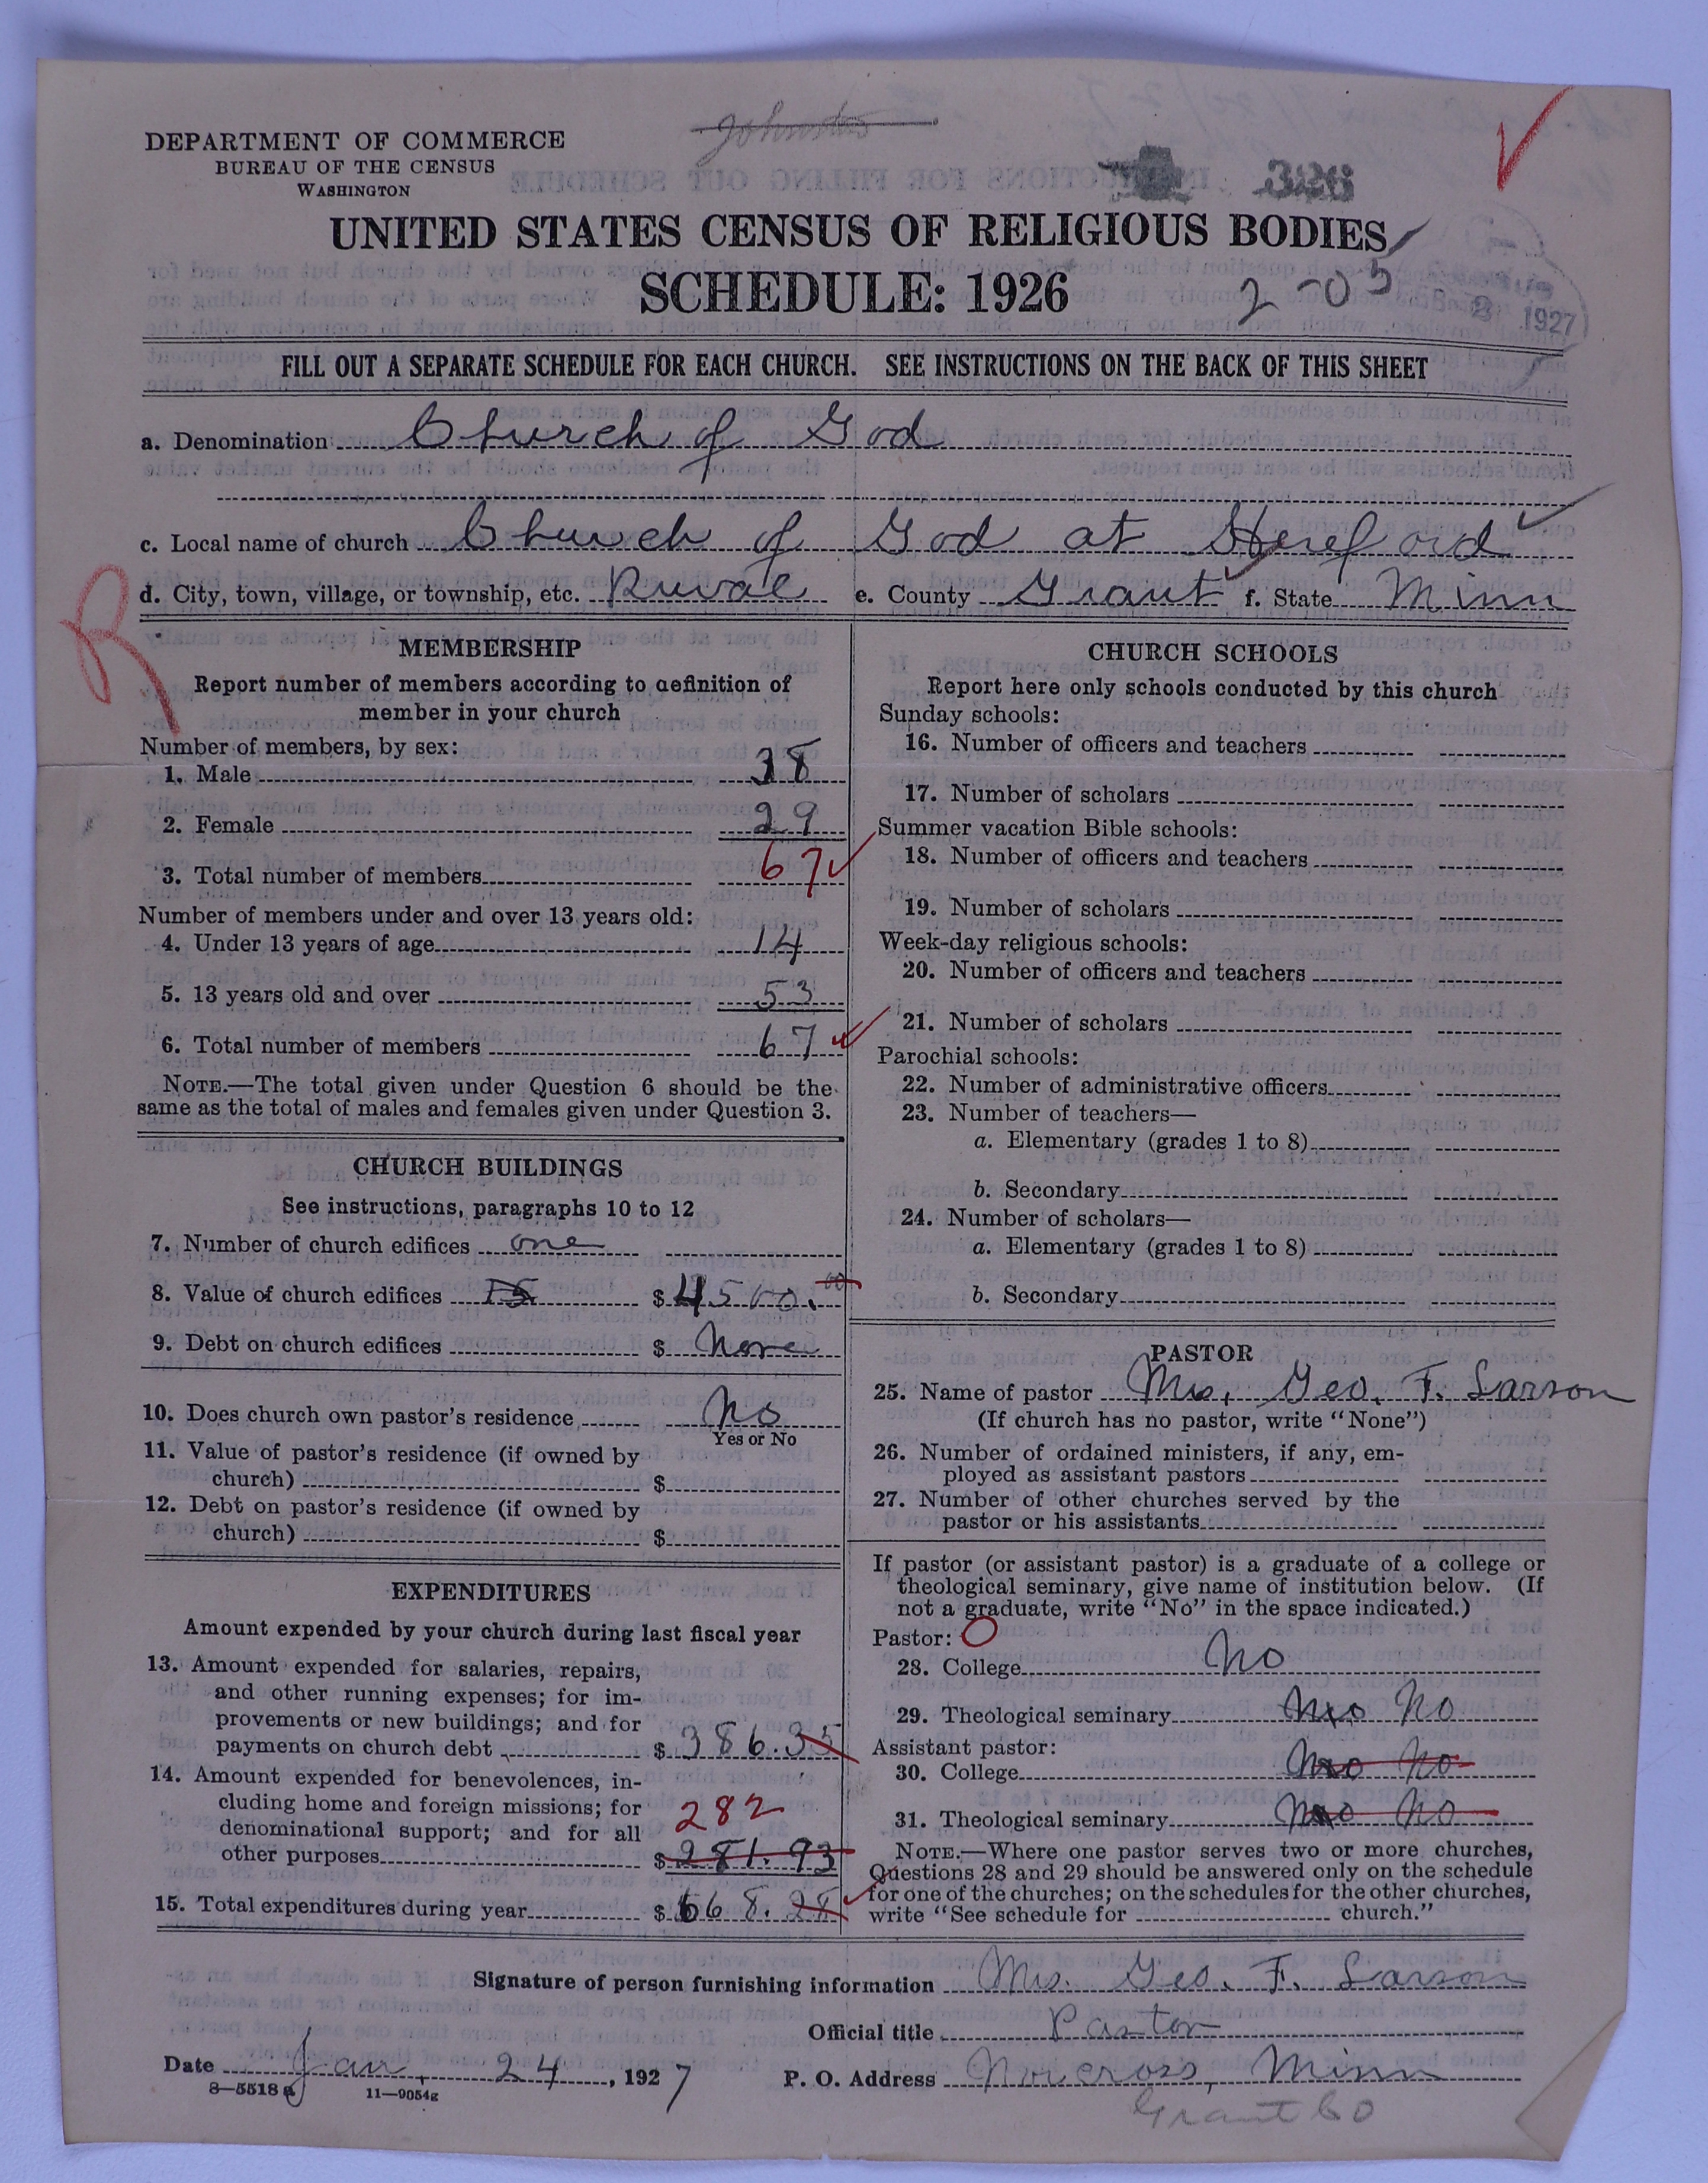 DEPARTMENT OF COMMERCE
BUREAU OF THE CENSUS
WASHINGTON
326
UNITED STATES CENSUS OF RELIGIOUS BODIES
SCHEDULE: 1926
2-05
1927
FILL OUT A SEPARATE SCHEDULE FOR EACH CHURCH. SEE INSTRUCTIONS ON THE BACK OF THIS SHEET
a. Denomination Church of God
c. Local name of church Church of God at Hereford
d. City, town, village, or township, etc. Rural e. County Grant f. State Minn
R
MEMBERSHIP
Report number of members according to definition of
member in your church
Number of members, by sex:
1. Male 38
2. Female 29
3. Total number of members 67
Number of members under and over 13 years old:
4. Under 13 years of age 14
5. 13 years old and over 53
6. Total number of members 67
NOTE.—The total given under Question 6 should be the
same as the total of males and females given under Question 3.
CHURCH BUILDINGS
See instructions, paragraphs 10 to 12
7. Number of church edifices one
8. Value of church edifices $ 4500.00
9. Debt on church edifices $ None
10. Does church own pastor's residence No
Yes or No
11. Value of pastor's residence (if owned by
church) $
12. Debt on pastor's residence (if owned by
church) $
EXPENDITURES
Amount expended by your church during last fiscal year
13. Amount expended for salaries, repairs,
and other running expenses; for im-
provements or new buildings; and for
payments on church debt $ 386.35
14. Amount expended for benevolences, in-
cluding home and foreign missions; for
denominational support; and for all
282
other purposes $ 281.93
15. Total expenditures during year $ 668.28
CHURCH SCHOOLS
Report here only schools conducted by this church
Sunday schools:
16. Number of officers and teachers
17. Number of scholars
Summer vacation Bible schools:
18. Number of officers and teachers
19. Number of scholars
Week-day religious schools:
20. Number of officers and teachers
21. Number of scholars
Parochial schools:
22. Number of administrative officers
23. Number of teachers—
a. Elementary (grades 1 to 8)
b. Secondary
24. Number of scholars—
a. Elementary (grades 1 to 8)
b. Secondary
PASTOR
25. Name of pastor Mrs. Geo. F. Larson
(If church has no pastor, write "None")
26. Number of ordained ministers, if any, em-
ployed as assistant pastors
27. Number of other churches served by the
pastor or his assistants
If pastor (or assistant pastor) is a graduate of a college or
theological seminary, give name of institution below. (If
not a graduate, write "No" in the space indicated.)
Pastor: O
28. College No
29. Theological seminary No
Assistant pastor:
30. College No
31. Theological seminary No
NOTE.—Where one pastor serves two or more churches,
Questions 28 and 29 should be answered only on the schedule
for one of the churches; on the schedules for the other churches,
write "See schedule for church."
Signature of person furnishing information Mrs. Geo. F. Larson
Official title Pastor
Date Jan. 24, 1927 P. O. Address Norcross, Minn
8—5518 a 11—9054g
Grant Co